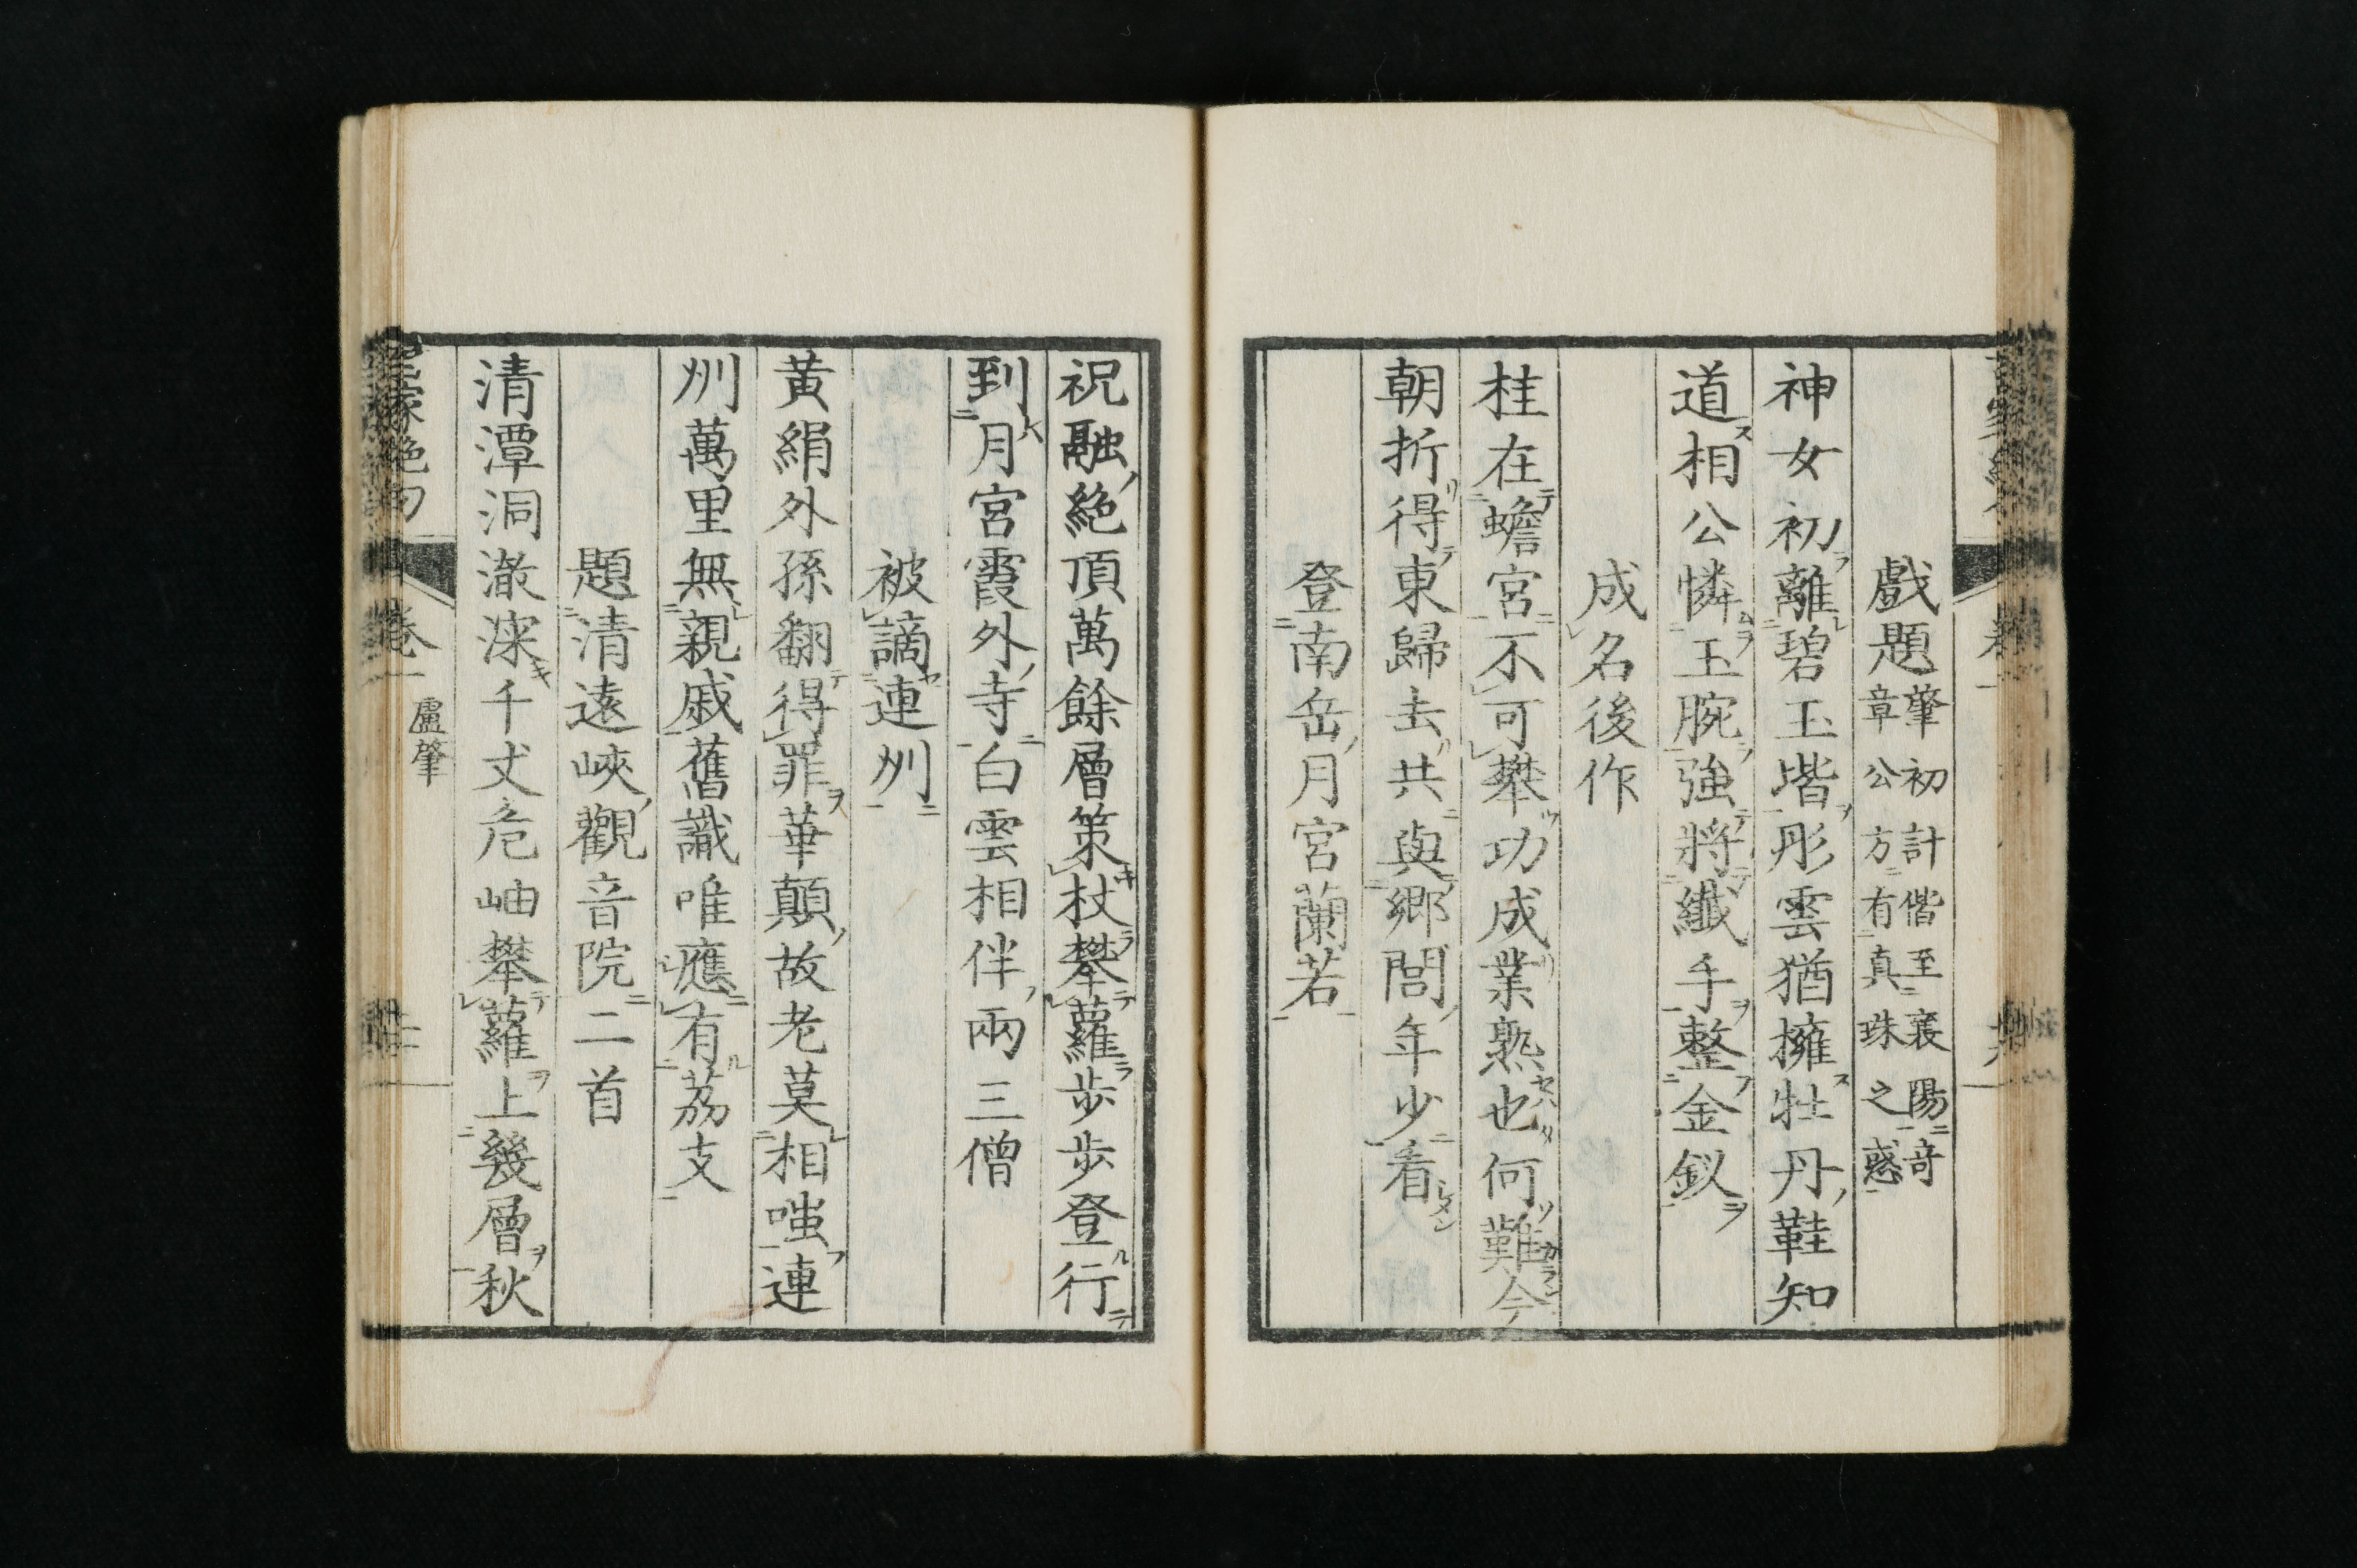 戯題肇初計偕至襄陽竒
章公方有真珠之惑
神女初離碧玉堦彤雲猶擁牡丹鞋知
道相公憐玉腕強將纖手整金釵
成名後作
桂在蟾宮不可攀功成業熟也何難今
朝折得東歸去共與郷閭年少看
登南岳月宮蘭若
祝融絶頂萬餘層策杖攀蘿歩歩登行
到月宮霞外寺白雲相伴兩三僧
被謫連州
黃絹外孫翻得罪華顛故老莫相嗤連
州萬里無親戚舊識唯應有茘支
題清遠峽觀音院二首
清潭洞澈深千丈危岫攀蘿上幾層秋
盧肇